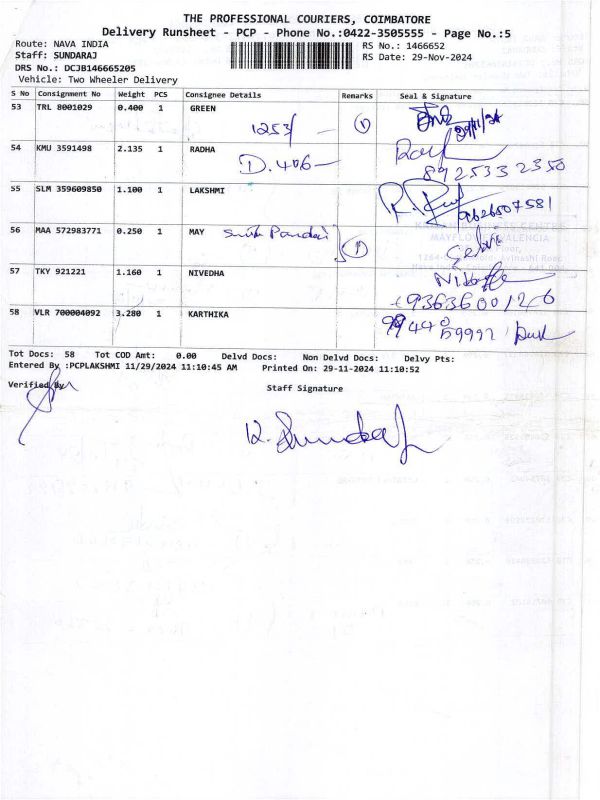 THE PROFESSIONAL COURIERS, COIMBATORE
Delivery Runsheet - PCP - Phone No.:0422-3505555 - Page No.:5
Route: NAVA INDIA RS No.: 1466652
Staff: SUNDARAJ RS Date: 29-Nov-2024
DRS No.: DCJB146665205
Vehicle: Two Wheeler Delivery
S No Consignment No Weight PCS Consignee Details Remarks Seal & Signature
53 TRL 8001029 0.400 1 GREEN
1253/ — 29/11/24
54 KMU 3591498 2.135 1 RADHA
D.406 — 8925332350
55 SLM 359609850 1.100 1 LAKSHMI
9626507581
56 MAA 572983771 0.250 1 MAY
MAYFLOWER VALENCIA
57 TKY 921221 1.160 1 NIVEDHA
58 VLR 700004092 3.280 1 KARTHIKA
Tot Docs: 58 Tot COD Amt: 0.00 Delvd Docs: Non Delvd Docs: Delvy Pts:
Entered By :PCPLAKSHMI 11/29/2024 11:10:45 AM Printed On: 29-11-2024 11:10:52
Verified By Staff Signature